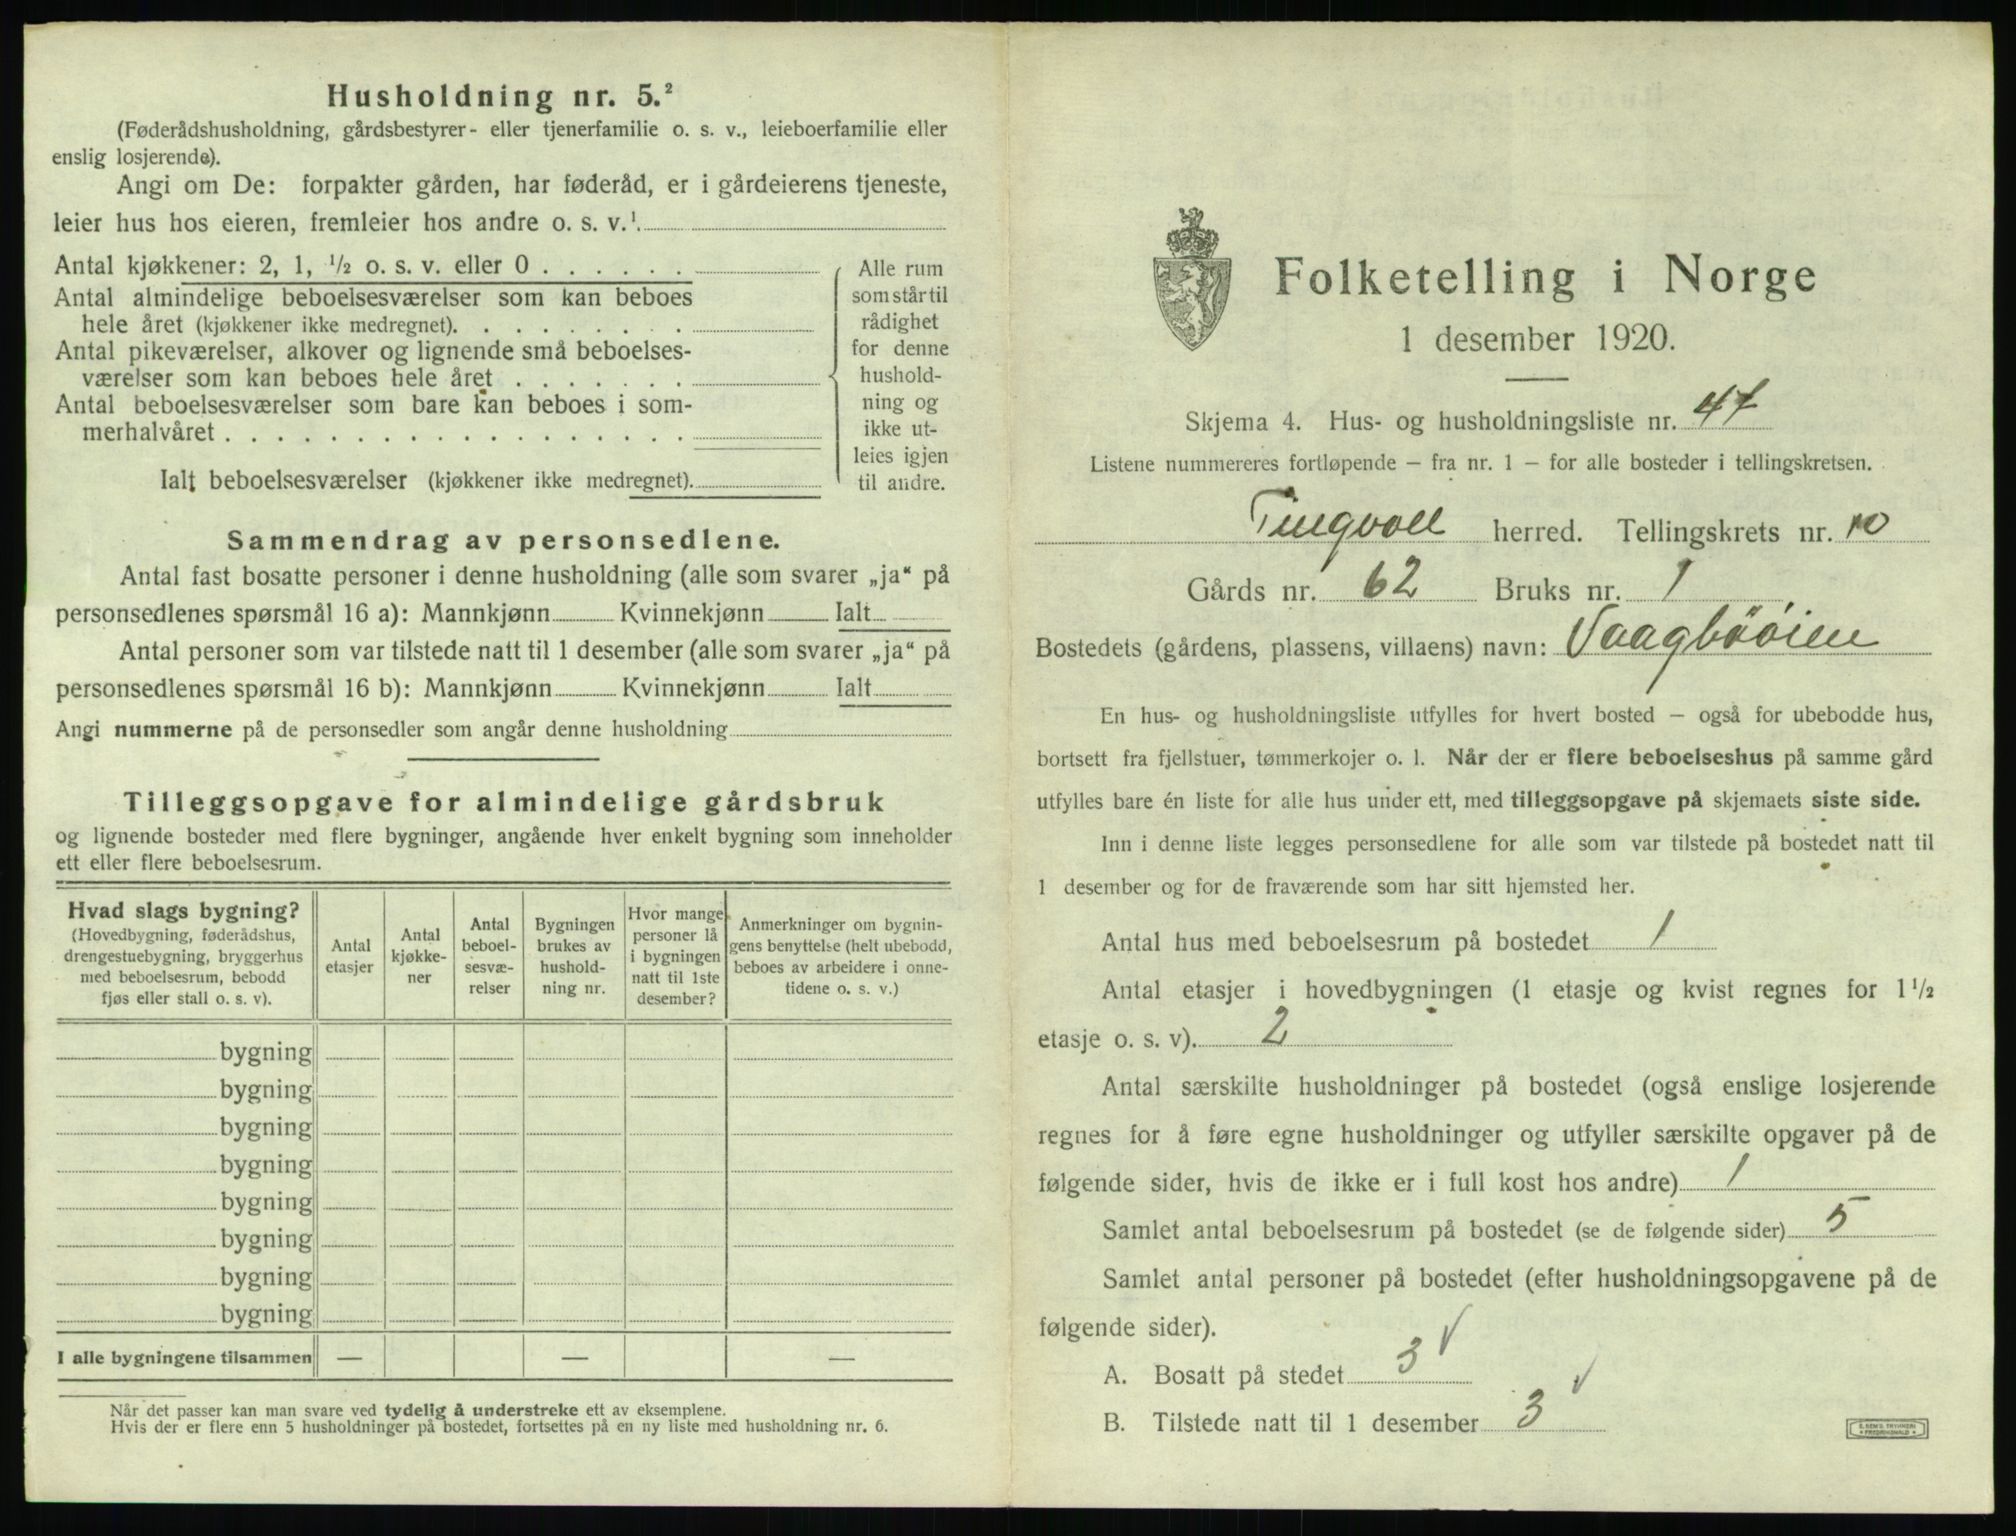 Husholdning nr. 5.²
(Føderådshusholdning, gårdsbestyrer- eller tjenerfamilie o. s. v., leieboerfamilie eller
enslig losjerende).
Angi om De: forpakter gården, har føderåd, er i gårdeierens tjeneste,
leier hus hos eieren, fremleier hos andre o. s. v.¹.
Antal kjøkkener: 2, 1, ½ o. s. v. eller 0 . . . . . .
Antal almindelige beboelsesværelser som kan beboes
hele året (kjøkkener ikke medregnet). . . . . . . . .
Antal pikeværelser, alkover og lignende små beboelses-
værelser som kan beboes hele året . . . . . . .
Antal beboelsesværelser som bare kan beboes i som-
merhalvåret . . . . . . . . . . . . . . . . . .
Ialt beboelsesværelser (kjøkkener ikke medregnet).
Alle rum
som står til
rådighet
for denne
hushold-
ning og
ikke ut-
leies igjen
til andre.
Sammendrag av personsedlene.
Antal fast bosatte personer i denne husholdning (alle som svarer „ja“ på
personsedlenes spørsmål 16 a): Mannkjønn Kvinnekjønn Ialt
Antal personer som var tilstede natt til 1 desember (alle som svarer „ja“ på
personsedlenes spørsmål 16 b): Mannkjønn Kvinnekjønn Ialt
Angi nummerne på de personsedler som angår denne husholdning
Tilleggsopgave for almindelige gårdsbruk
og lignende bosteder med flere bygninger, angående hver enkelt bygning som inneholder
ett eller flere beboelsesrum.
Hvad slags bygning?
(Hovedbygning, føderådshus,
drengestuebygning, bryggerhus
med beboelsesrum, bebodd
fjøs eller stall o. s. v).
Antal
etasjer
Antal
kjøkke-
ner
Antal
beboel-
sesvæ-
relser
Bygningen
brukes av
hushold-
ning nr.
Hvor mange
personer lå
i bygningen
natt til 1ste
desember?
Anmerkninger om bygnin-
gens benyttelse (helt ubebodd,
beboes av arbeidere i onne-
tidene o. s. v.)
bygning
bygning
bygning
bygning
bygning
bygning
bygning
bygning
I alle bygningene tilsammen — — —
Når det passer kan man svare ved tydelig å understreke ett av eksemplene.
Hvis der er flere enn 5 husholdninger på bostedet, fortsettes på en ny liste med husholdning nr. 6.
Folketelling i Norge
1 desember 1920.
Skjema 4. Hus- og husholdningsliste nr. 47
Listene nummereres fortløpende – fra nr. 1 – for alle bosteder i tellingskretsen.
Tingvoll herred. Tellingskrets nr. 10
Gårds nr. 62 Bruks nr. 1
Bostedets (gårdens, plassens, villaens) navn: Vaagbööien
En hus- og husholdningsliste utfylles for hvert bosted – også for ubebodde hus,
bortsett fra fjellstuer, tømmerkojer o. l. Når der er flere beboelseshus på samme gård
utfylles bare én liste for alle hus under ett, med tilleggsopgave på skjemaets siste side.
Inn i denne liste legges personsedlene for alle som var tilstede på bostedet natt til
1 desember og for de fraværende som har sitt hjemsted her.
Antal hus med beboelsesrum på bostedet 1
Antal etasjer i hovedbygningen (1 etasje og kvist regnes for 1½
etasje o. s. v). 2
Antal særskilte husholdninger på bostedet (også enslige losjerende
regnes for å føre egne husholdninger og utfyller særskilte opgaver på de
følgende sider, hvis de ikke er i full kost hos andre) 1
Samlet antal beboelsesrum på bostedet (se de følgende sider) 5
Samlet antal personer på bostedet (efter husholdningsopgavene på de
følgende sider).
A. Bosatt på stedet 3 √
B. Tilstede natt til 1 desember 3 √